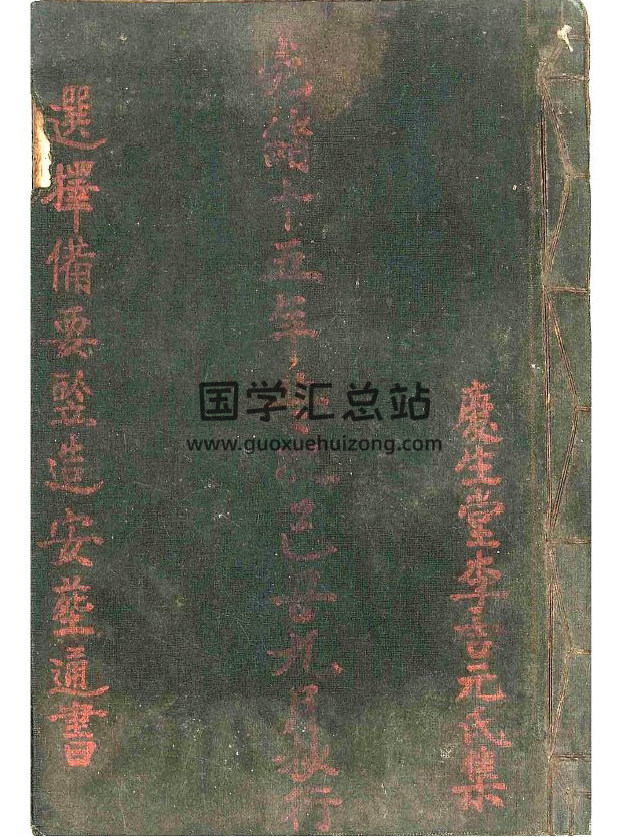 慶生堂李吉元氏集
光緒十五年己九月行
選擇備要竪造安塟通書
国学汇总站
www.guoxuehuizong.com